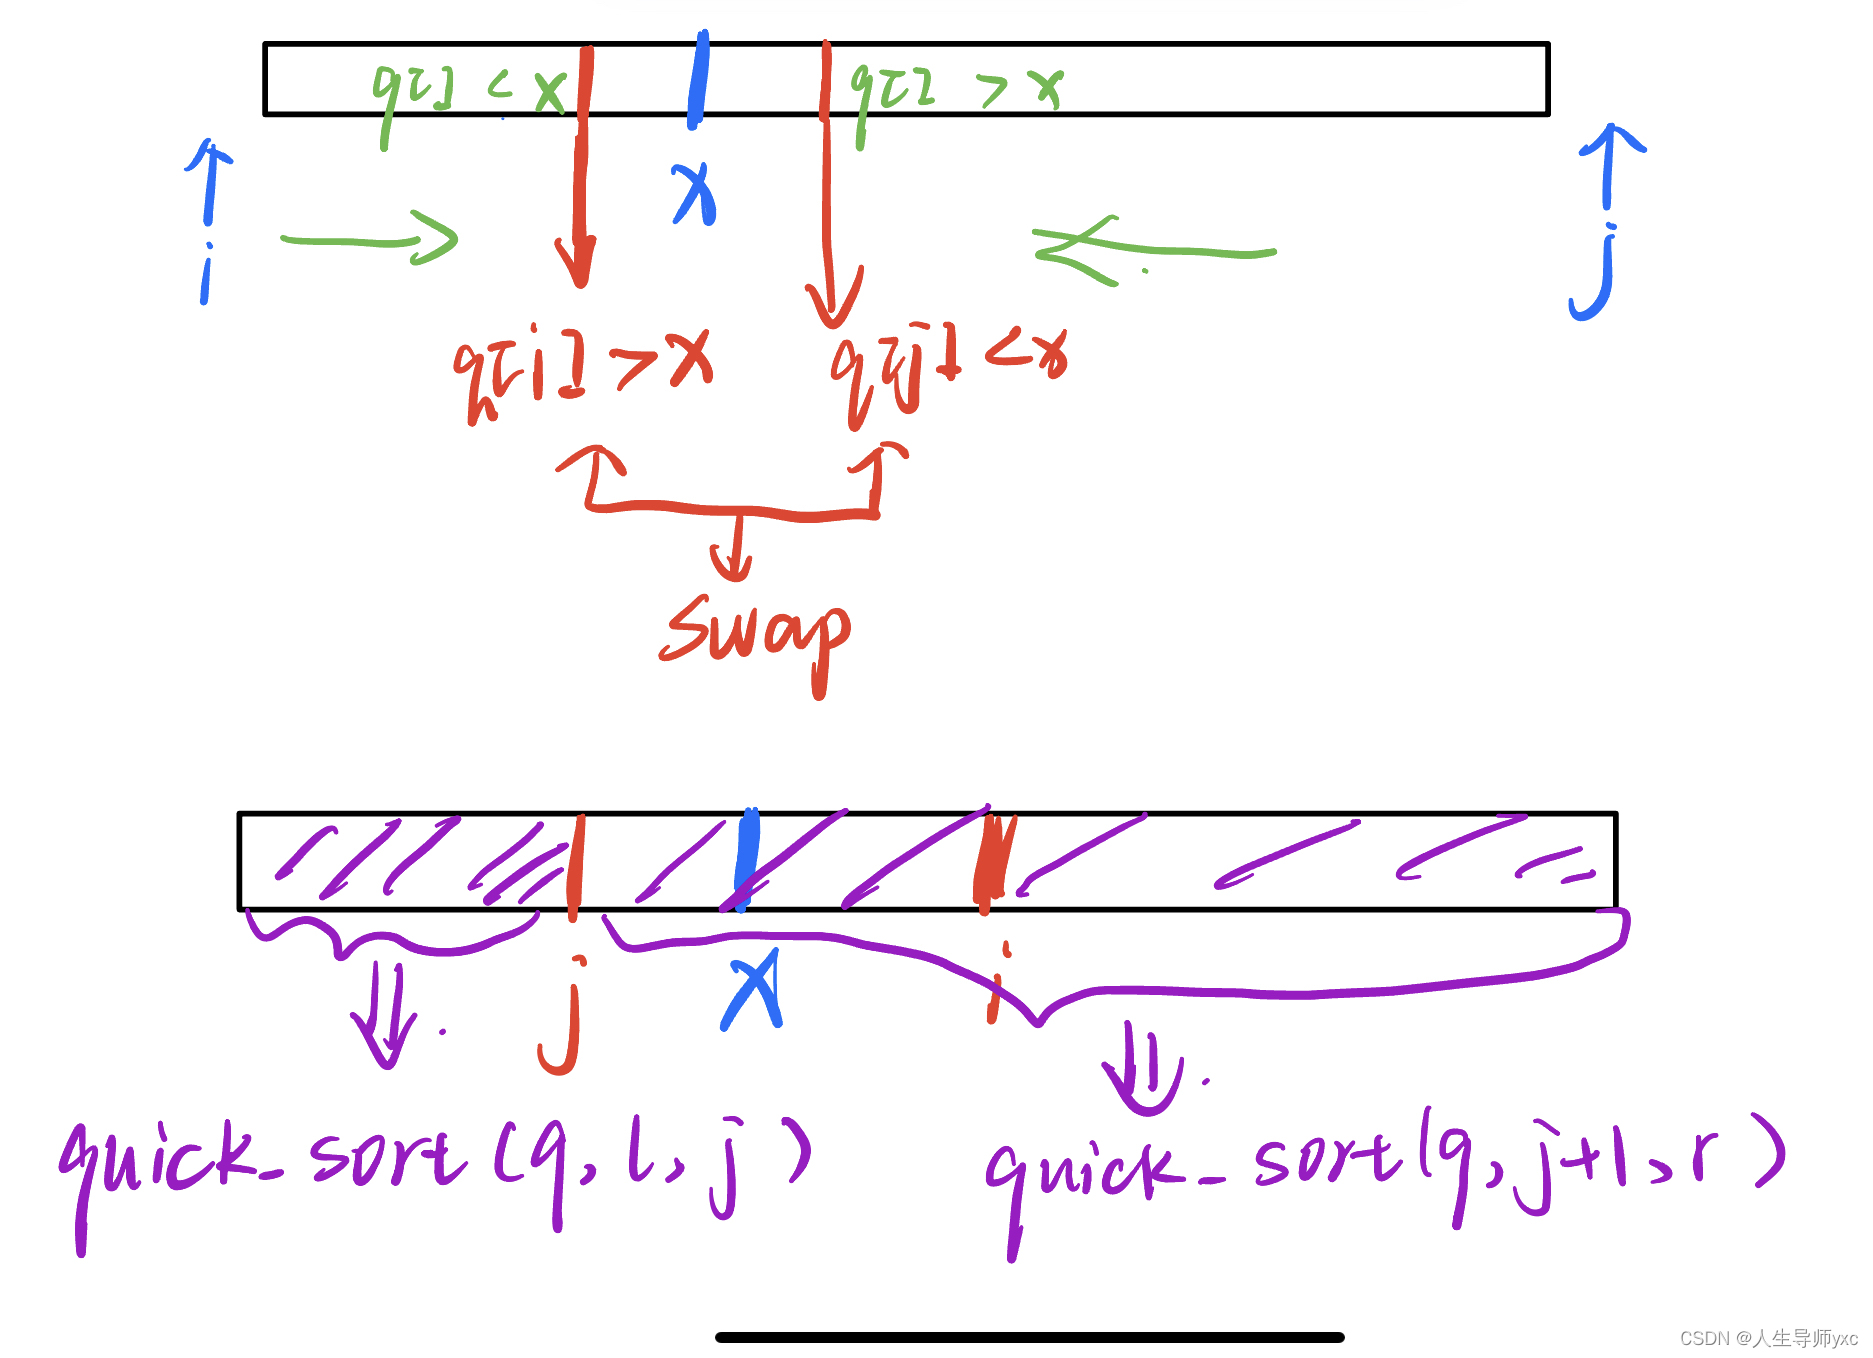 q[] < x q[] > x
x
i j
q[i] > x q[j] < x
swap
j x i
quick_sort(q, l, j) quick_sort(q, j+1, r)
CSDN @人生导师yxc